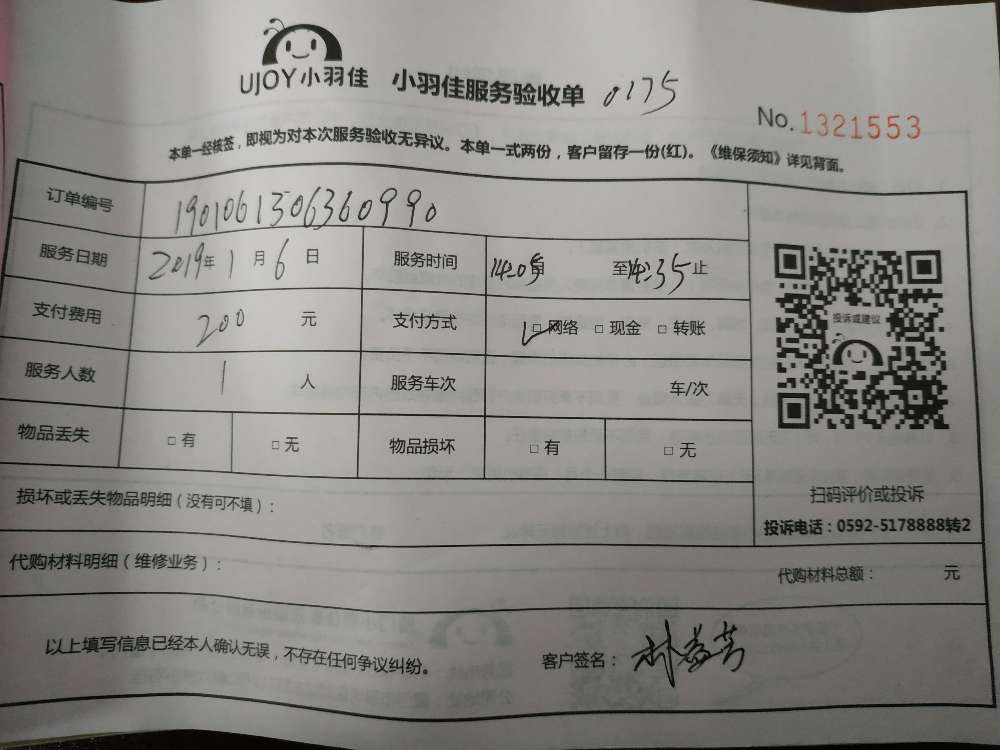 UJOY小羽佳 小羽佳服务验收单 0175
No.1321553
本单一经核签，即视为对本次服务验收无异议。本单一式两份，客户留存一份(红)。《维保须知》详见背面。
订单编号 1901061506360990
服务日期 2019年1月6日 服务时间 14:05 至14:35止
支付费用 200元 支付方式 □网络 □现金 □转账
服务人数 1人 服务车次 车/次
物品丢失 □有 □无 物品损坏 □有 □无
投诉或建议
扫码评价或投诉
投诉电话：0592-5178888转2
损坏或丢失物品明细（没有可不填）：
代购材料明细（维修业务）：
代购材料总额： 元
以上填写信息已经本人确认无误，不存在任何争议纠纷。 客户签名：